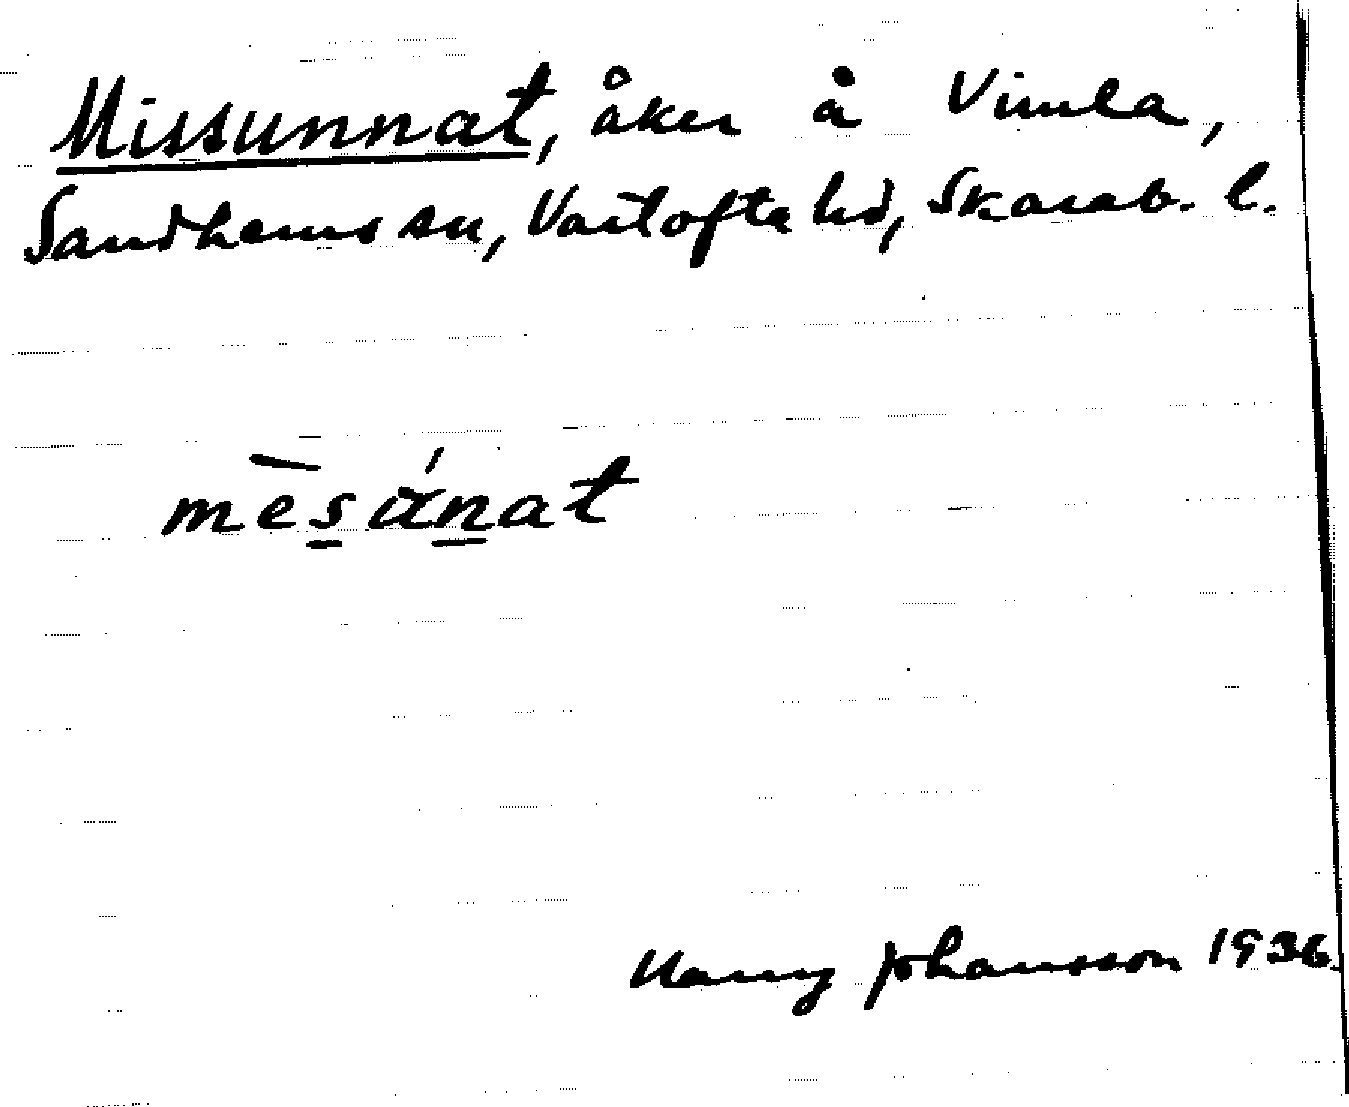 Missunnat, åker å Vimla,
Sandhems sn, Vartofta hd, Skarab. l.
mèsánat
Nanny Johansson 1936